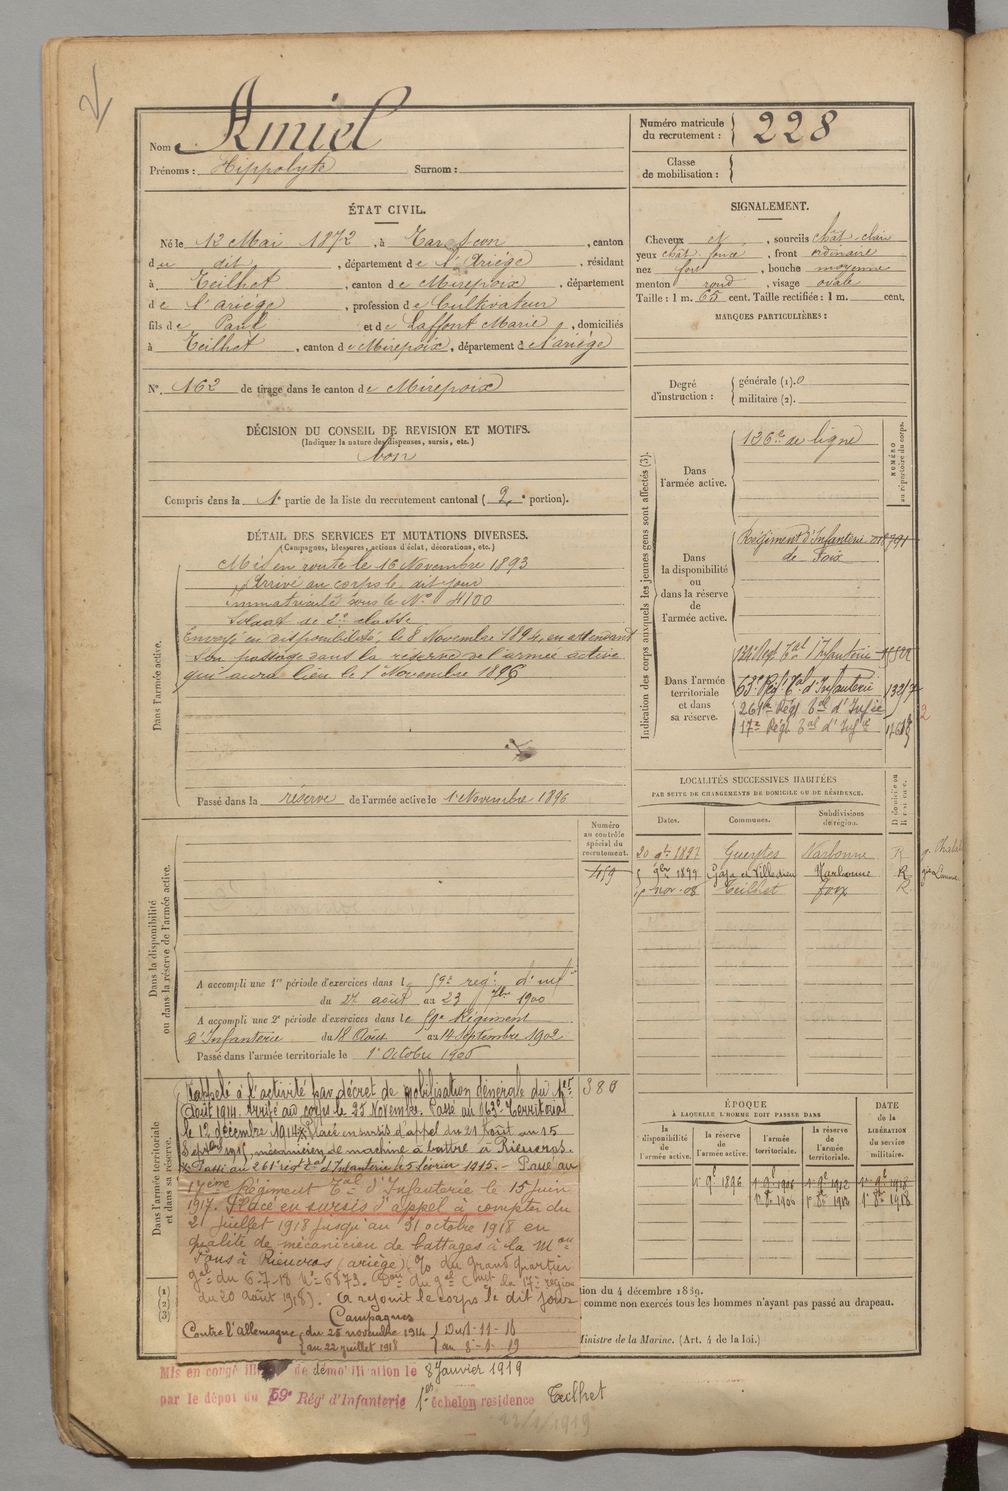 Nom Amiel
Prénoms : Hippolyte Surnom :
Numéro matricule du recrutement : 228
Classe de mobilisation :
ÉTAT CIVIL.
Né le 12 Mai 1872, à Tarascon, canton
du dit, département de l'Ariège, résidant
à Teilhet, canton de Mirepoix, département
de l'ariège, profession de Cultivateur
fils de Paul et de Laffont Marie, domiciliés
à Teilhet, canton de Mirepoix, département de l'ariège
N° 162 de tirage dans le canton de Mirepoix
DÉCISION DU CONSEIL DE REVISION ET MOTIFS.
(Indiquer la nature des dispenses, sursis, etc.)
bon
Compris dans la 1e partie de la liste du recrutement cantonal (2e portion).
DÉTAIL DES SERVICES ET MUTATIONS DIVERSES.
(Campagnes, blessures, actions d'éclat, décorations, etc.)
Dans l'armée active.
Mis en route le 16 Novembre 1893
Arrivé au corps le dit jour
immatriculé sous le N° 4100
Soldat de 2e classe
Envoyé en disponibilité, le 8 Novembre 1894, en attendant
son passage dans la réserve de l'armée active
qui aura lieu le 1er Novembre 1896
Passé dans la réserve de l'armée active le 1 Novembre 1896
Dans la disponibilité ou dans la réserve de l'armée active.
Numéro au contrôle spécial du recrutement.
459
A accompli une 1re période d'exercices dans le 59e rég. d'inf
du 27 août au 23 7bre 1900
A accompli une 2e période d'exercices dans le 59e Régiment
d'Infanterie du 18 Août au 14 Septembre 1902
Passé dans l'armée territoriale le 1er Octobre 1906
Dans l'armée territoriale et dans sa réserve.
380
Rappelé à l'activité par décret de mobilisation générale du 1er
Août 1914. Arrivé au corps le 25 Novembre. Passé au 63e Territorial
le 12 décembre 1914 x Placé en sursis d'appel du 21 Août au 15
Septbre 1915, mécanicien de machine à battre à Rieucros.
x Passé au 261e régt tal d'Infanterie le 5 février 1915. – Passé au
17ème Régiment Tal d'Infanterie le 15 Juin
1917. Placé en sursis d'appel à compter du
21 Juillet 1918 jusqu'au 31 octobre 1918 en
qualité de mécanicien de battages à la Mon
Fons à Rieucros (ariège) (% du Grand quartier
gal du 6-7-18 N° 6873. la 17e région
du 20 Août 1918). (a rejoint le corps le dit jour
Campagnes
Contre l'Allemagne du 25 novembre 1914 au 22 juillet 1918
Du 1-11-18 au 8-1-19
Mis en congé de démobilisation le 8 Janvier 1919
par le dépôt du 59e Régt d'Infanterie 1er échelon residence Teilhet
22/1/1919
SIGNALEMENT.
Cheveux et, sourcils chât. clair
yeux chât. foncé, front ordinaire
nez fort, bouche moyenne
menton rond, visage ovale
Taille : 1 m. 65 cent. Taille rectifiée : 1 m. cent.
MARQUES PARTICULIÈRES :
Degré d'instruction : générale (1). 0
militaire (2).
Indication des corps auxquels les jeunes gens sont affectés (3).
NUMÉRO au répertoire du corps.
Dans l'armée active.
136e de ligne
Dans la disponibilité ou dans la réserve de l'armée active.
Régiment d'Infanterie
de Foix
Dans l'armée territoriale et dans sa réserve.
134e Régt Tal d'Infanterie
63e Régt Tal d'Infanterie
261e Régt Tal d'Infie
17e Régt Tal d'Infie
2
LOCALITÉS SUCCESSIVES HABITÉES
PAR SUITE DE CHANGEMENTS DE DOMICILE OU DE RÉSIDENCE.
Dates. Communes. Subdivisions de région. D domicile ou R résidence.
20 9bre 1897 Gueytes Narbonne R
5 9bre 1899 Gaja et Villedieu Narbonne R
nov. 08 Teilhet Foix R
ÉPOQUE
À LAQUELLE L'HOMME DOIT PASSER DANS
DATE de la LIBÉRATION du service militaire.
la disponibilité de l'armée active. la réserve de l'armée active. l'armée territoriale. la réserve de l'armée territoriale.
1er 9e 1896 1er 9e 1906 1er 9e 1912 1er 9e 1918
1er 8e 1906 1er 8e 1912 1er 8e 1918
(1)
(2)
(3)
tion du 4 décembre 1889.
comme non exercés tous les hommes n'ayant pas passé au drapeau.
Ministre de la Marine. (Art. 4 de la loi.)